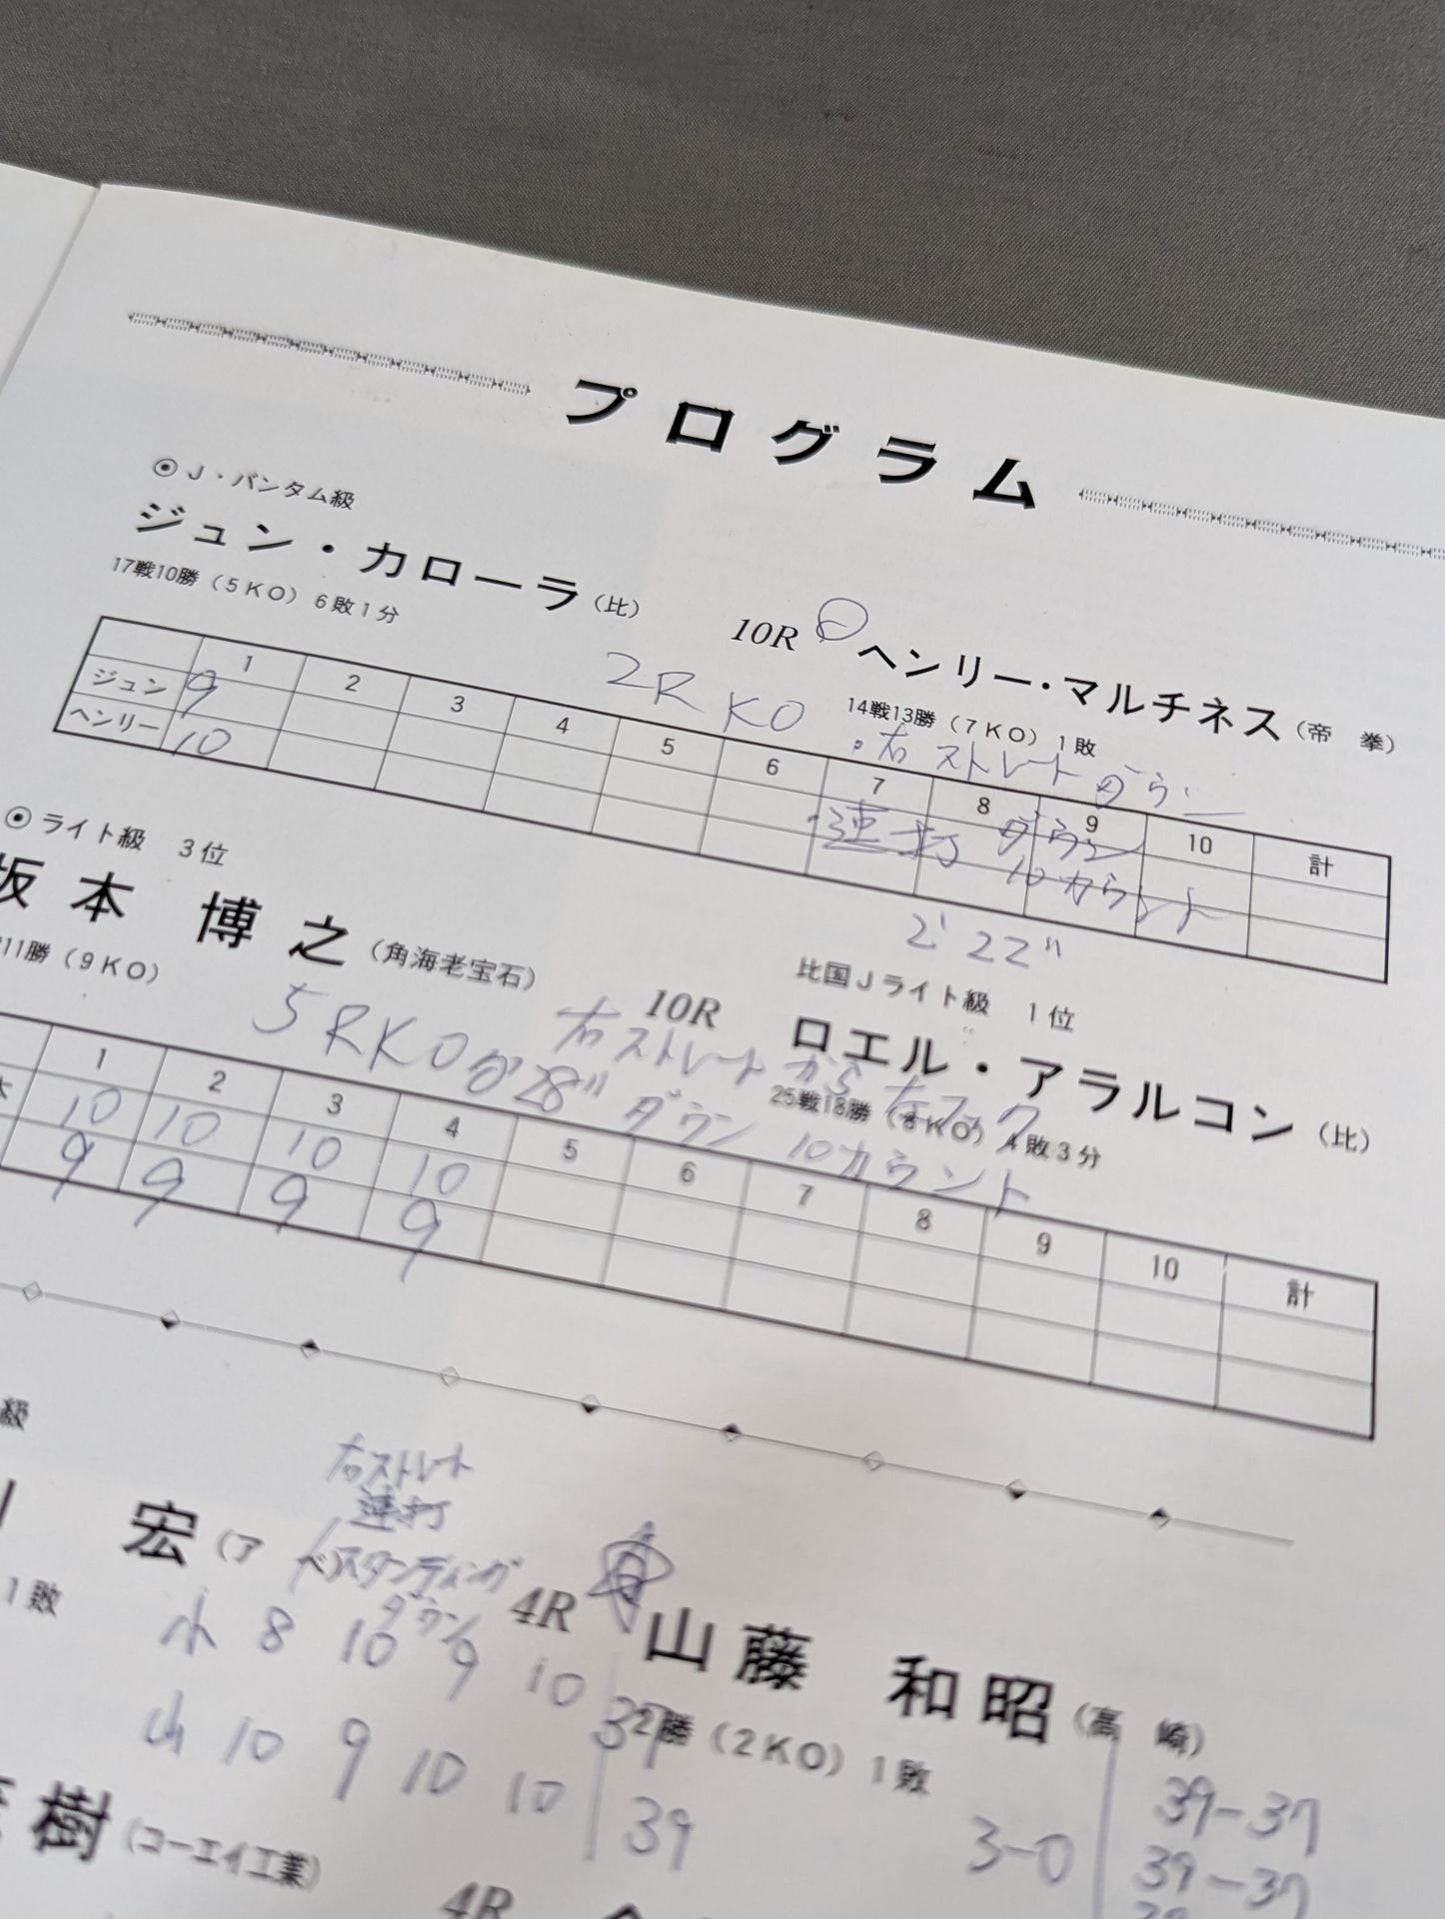 プログラム
◉J・バンタム級
ジュン・カローラ（比）
17戦10勝（5KO）6敗1分
10R
ヘンリー・マルチネス（帝 拳）
14戦13勝（7KO）1敗
2R KO
・右ストレート ダウン
1 2 3 4 5 6 7 8 9 10 計
ジュン 9
ヘンリー 10
・連打 ダウン
10カウント
2' 22"
◉ライト級 3位
坂本 博之（角海老宝石）
11勝（9KO）
10R
比国Jライト級 1位
ロエル・アラルコン（比）
25戦18勝（8KO）4敗3分
5RKO
28"
右ストレートから左フック
ダウン 10カウント
1 2 3 4 5 6 7 8 9 10 計
10 10 10 10
9 9 9 9
級
宏（ア ベ）
1敗
右ストレート
連打
スタンディング
ダウン
4R
山藤 和昭（高 崎）
2勝（2KO）1敗
小 8 10 9 10 37
山 10 9 10 10 39
3-0
39-37
39-37
樹（コーエイ工業）
4R